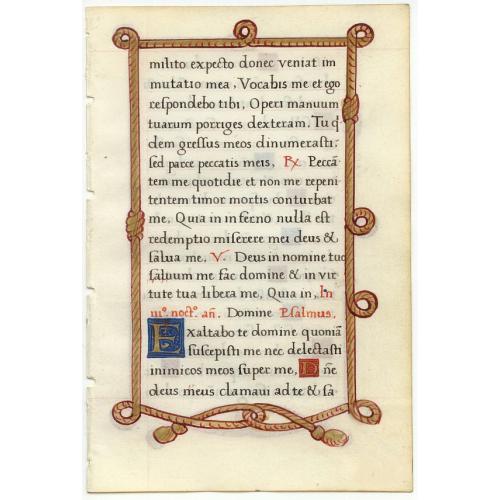 milito expecto donec veniat im
mutatio mea, Vocabis me et ego
respondebo tibi, Operi manuum
tuarum porriges dexteram. Tu q̃
dem gressus meos dinumerasti.
sed parce peccatis meis, ℟ Peccã
tem me quotidie et non me repeni
tentem timor mortis conturbat
me, Quia in inferno nulla est
redemptio miserere mei deus &
salua me, V. Deus in nomine tuo
saluum me fac domine & in vir
tute tua libera me, Quia in, In
iiiº. noctº. añ. Domine Psalmus.
Exaltabo te domine quoniã
suscepisti me nec delectasti
inimicos meos super me, Dñe
deus meus clamaui ad te & sa